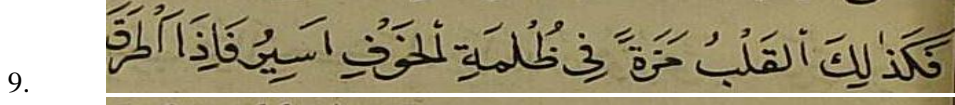 9. فَكَذٰلِكَ ٱلقَلْبُ مَرَّةً فِي ظُلْمَةِ ٱلخَوْفِ اَسِيرُ فَاِذَا